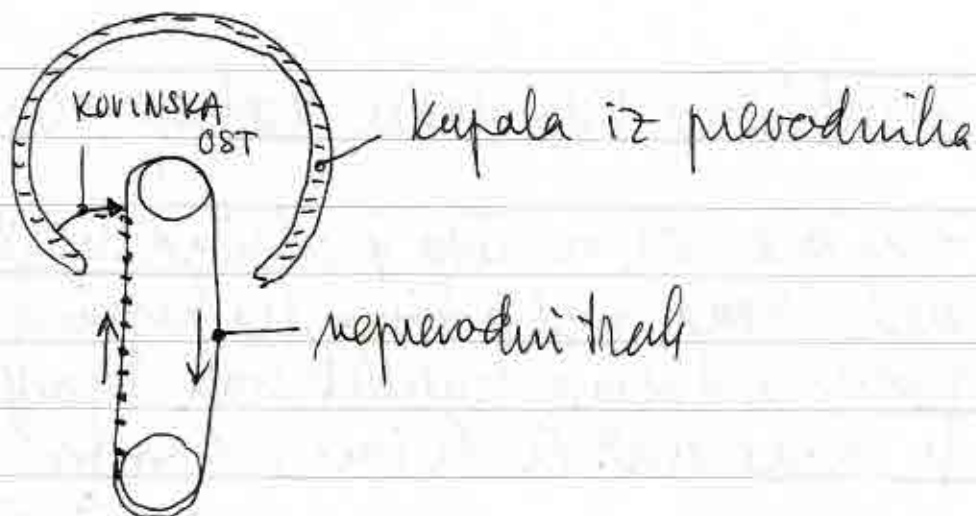 KOVINSKA
OST
kupola iz prevodnika
neprevodni trak